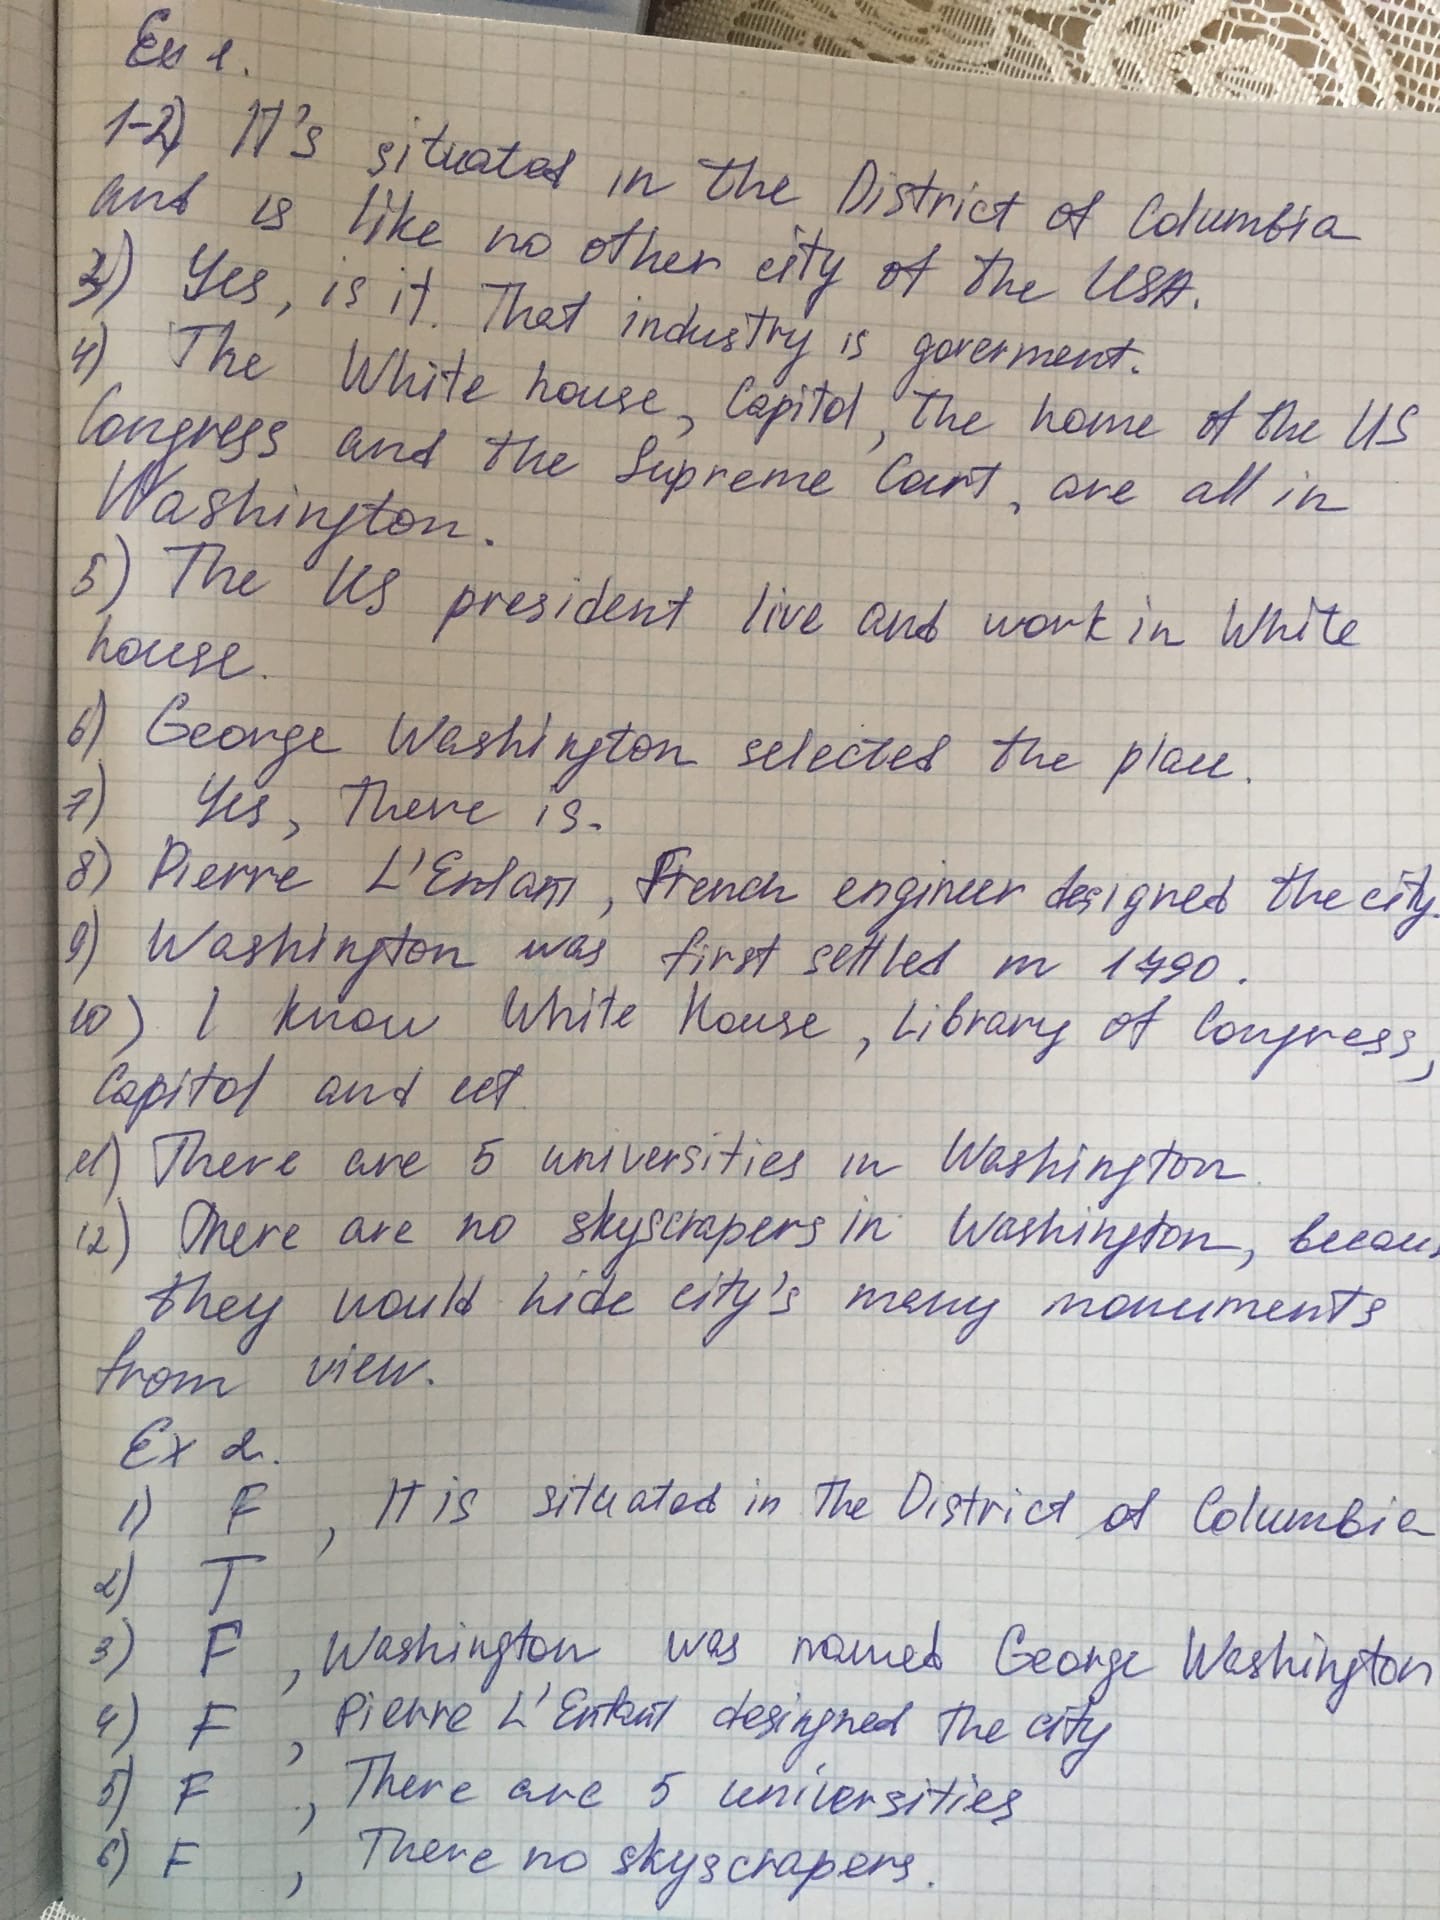 Ex 1.
1-2) It's situated in the District of Columbia
and is like no other city of the USA.
3) Yes, is it. That industry is goverment.
4) The White house, Capitol, the home of the US
Congress and the Supreme Court, are all in
Washington.
5) The US president live and work in White
house.
6) George Washington selected the place.
7) Yes, there is.
8) Pierre L'Enfant, French engineer designed the city.
9) Washington was first settled in 1790.
10) I know White House, Library of Congress,
Capitol and ect
11) There are 5 universities in Washington.
12) There are no skyscrapers in Washington, becaus
they would hide city's many monuments
from view.
Ex 2.
1) F, It is situated in the District of Columbia
2) T
3) F, Washington was named George Washington
4) F, Pierre L'Enfant desingned the city
5) F, There are 5 universities
6) F, There no skyscrapers.